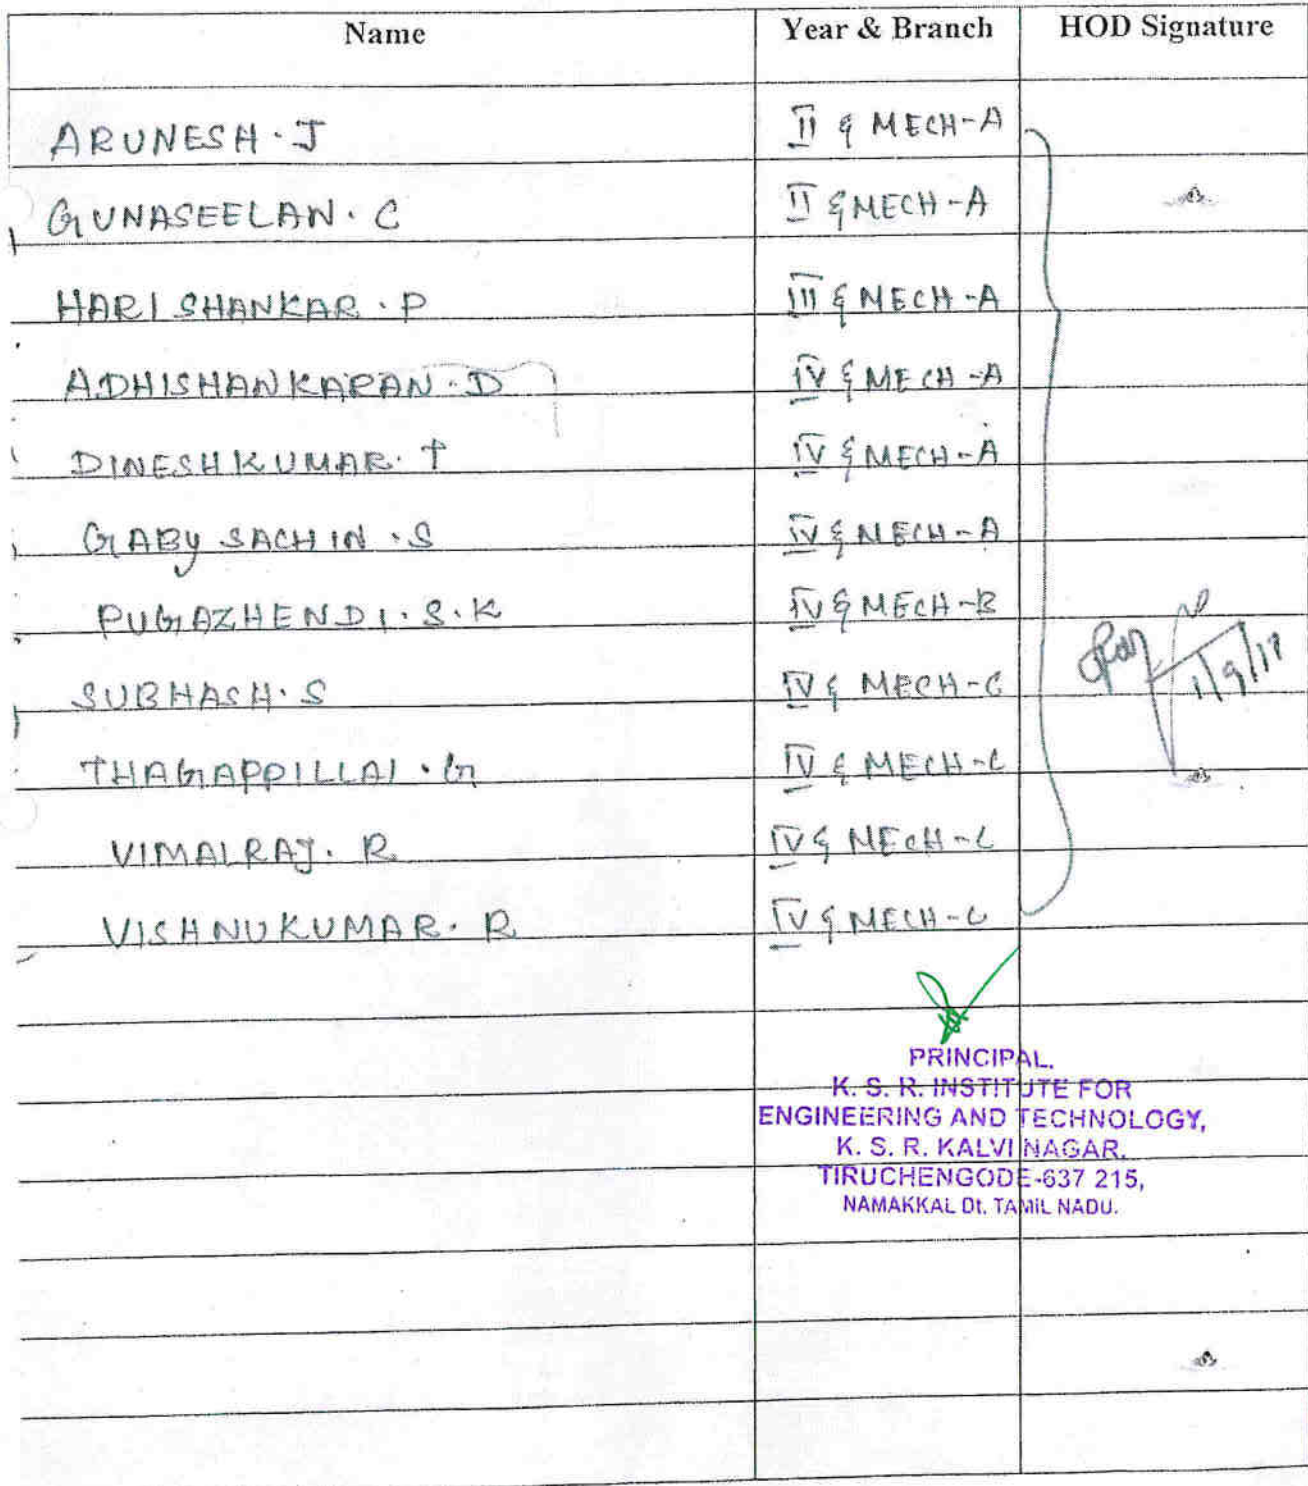 Name Year & Branch HOD Signature
ARUNESH. J II & MECH-A
GUNASEELAN. C II & MECH-A
HARI SHANKAR. P III & MECH-A
ADHISHANKARAN. D IV & MECH-A
DINESHKUMAR. T IV & MECH-A
GABY SACHIN. S IV & MECH-A
PUGAZHENDI. S.K IV & MECH-B
SUBHASH. S IV & MECH-C
1/9/17
THAGAPPILLAI. G IV & MECH-C
VIMALRAJ. R IV & MECH-C
VISHNUKUMAR. R IV & MECH-C
PRINCIPAL,
K. S. R. INSTITUTE FOR
ENGINEERING AND TECHNOLOGY,
K. S. R. KALVI NAGAR,
TIRUCHENGODE-637 215,
NAMAKKAL Dt. TAMIL NADU.